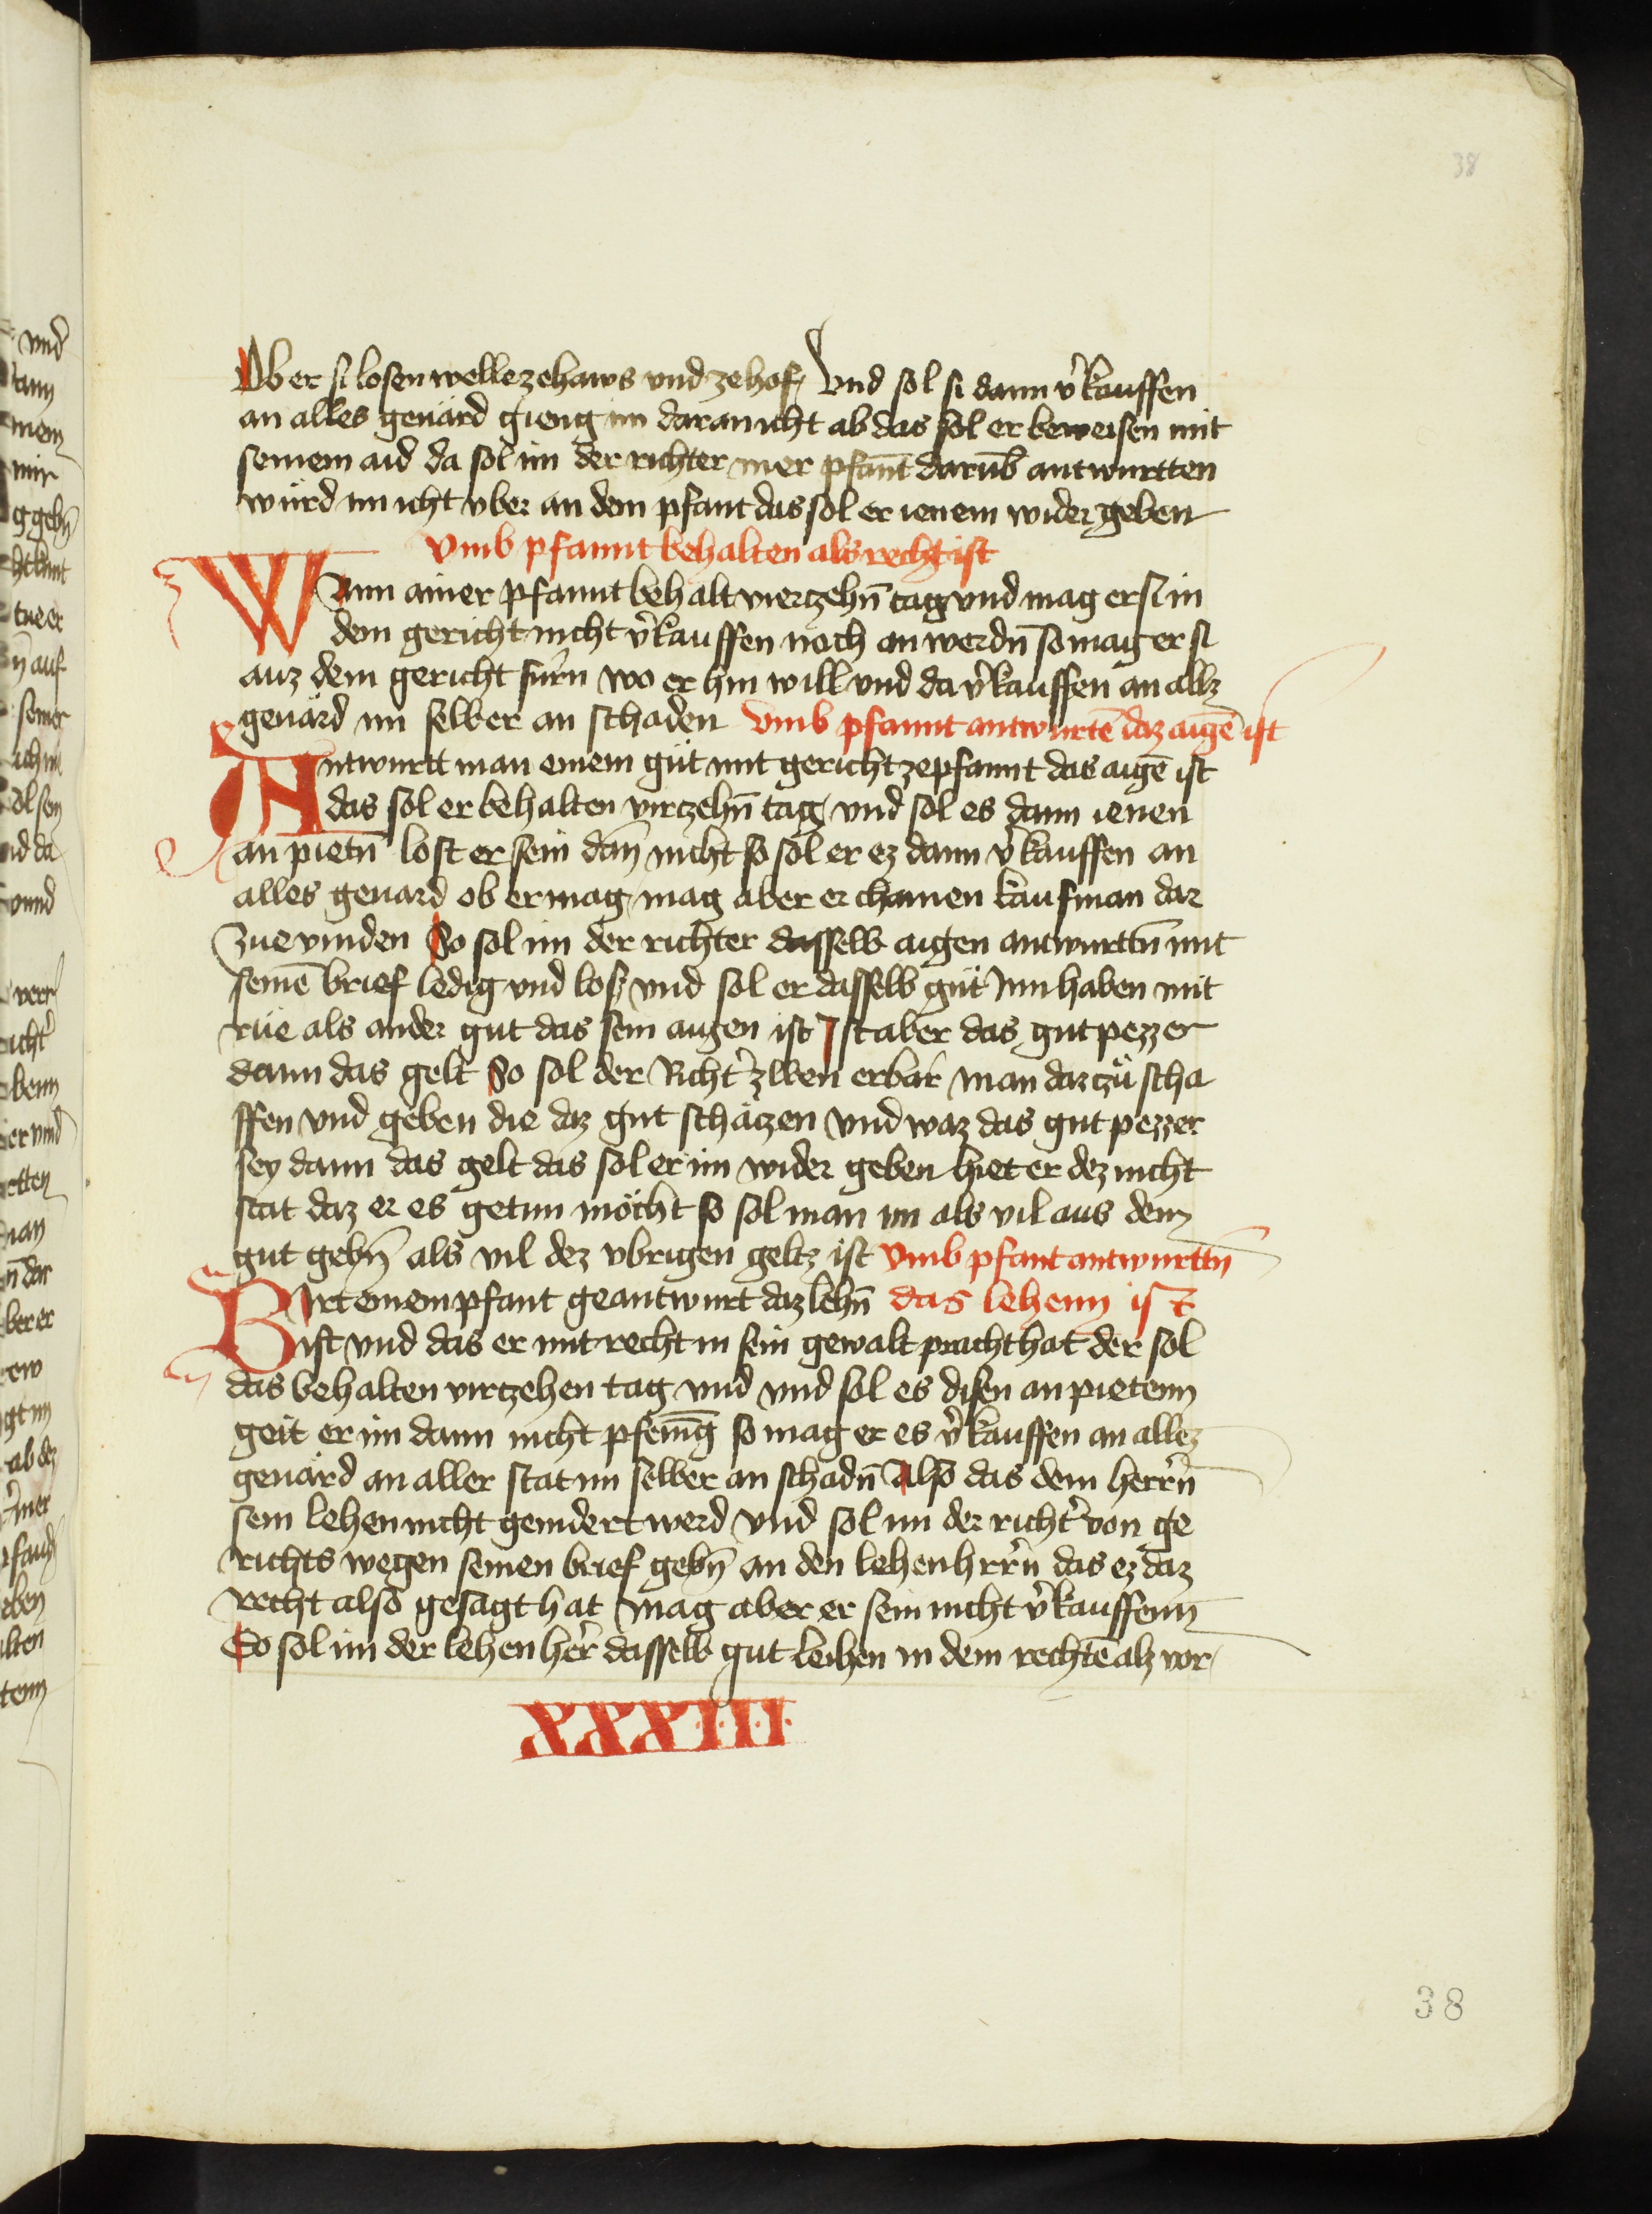 38
Ob er si losen welle ze haws vnd ze hof / Vnd sol si dann v̓kauffen
an alles geuärd gieng im daran icht ab das sol er beweisen mit
seinem aid da sol im der richter mer pfant̄ darūb antwurtten
würd im icht vber an dem pfant das sol er ienem wider geben
Vmb pfannt behalten als recht ist
Wann ainer pfannt behalt viertzehn̄ tag vnd mag er si in
dem gericht nicht v̓kauffen noch an werdn̄ so mag er si
auz dem gericht fürn wo er hin will vnd da v̓kauffen an allz
geuärd im selber an schaden Vmb pfannt antwurtē daz aigē ist
Antwurtt man einem güt mit gericht ze pfannt das aigē ist
das sol er behalten virtzehn̄ tag / vnd sol es dann ienen
an pietn̄ lost er sein dan̄ nicht so sol er ez dann v̓kauffen an
alles geuard ob er mag / mag aber er chainen kaufman dar
zue vinden So sol im der richter dasselb aigen antwurttn̄ mit
seinē brief ledig vnd los vnd sol er dasselb güt Inn haben mit
rüe als ander gut das sein aigen ist Ist aber das gut pezzer
dann das gelt So sol der Richt̓ zwen erbar man dar tzü scha
ffen vnd geben die daz gut schätzen vnd waz das gut pezzer
sey dann das gelt das sol er im wider geben hiet er dez nicht
stat daz er es getun möcht so sol man im als vil aus dem
gut gebn̄ als vil dez vbrigen geltz ist Vmb pfant antwurttn̄
Wirt einem pfant geantwurt daz lehn̄ das lehenn ist
ist vnd das er mit recht in sein gewalt pracht hat der sol
das behalten virtzehen tag vnd vnd sol es disen an pietenn
geit er im dann nicht pfenīg so mag er es v̓kauffen an allez
geuärd an aller stat im selber an schadn̄ Also das dem herr̓n
sein lehen nicht gemdert werd vnd sol im der richt̓ von ge
richts wegen seinen brief gebn̄ an den lehenhrr̓n das ez daz
recht also gesagt hat / mag aber er sein nicht v̓kauffenn̄
So sol im der lehen her̓ dasselb gut leihen in dem rechtē alz vor
XXXIII
38